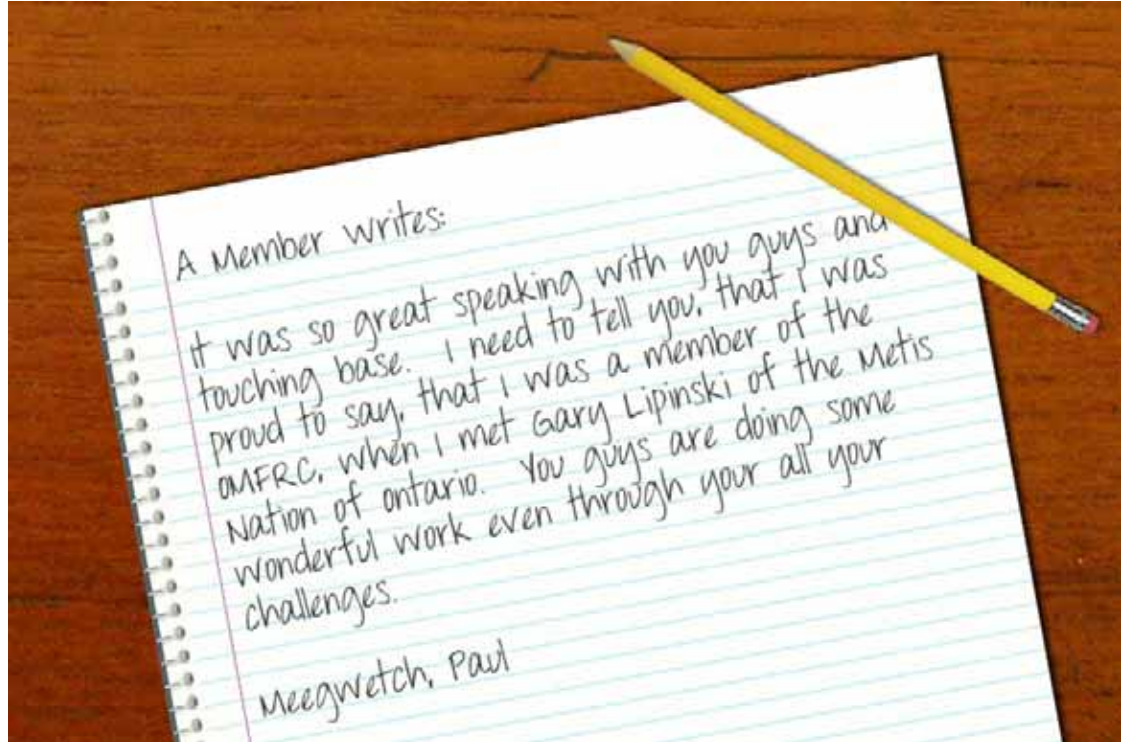 A Member Writes:
it was so great speaking with you guys and
touching base. I need to tell you, that I was
proud to say, that I was a member of the
OMFRC, when I met Gary Lipinski of the Metis
Nation of Ontario. You guys are doing some
wonderful work even through your all your
challenges.
Meegwetch, Paul